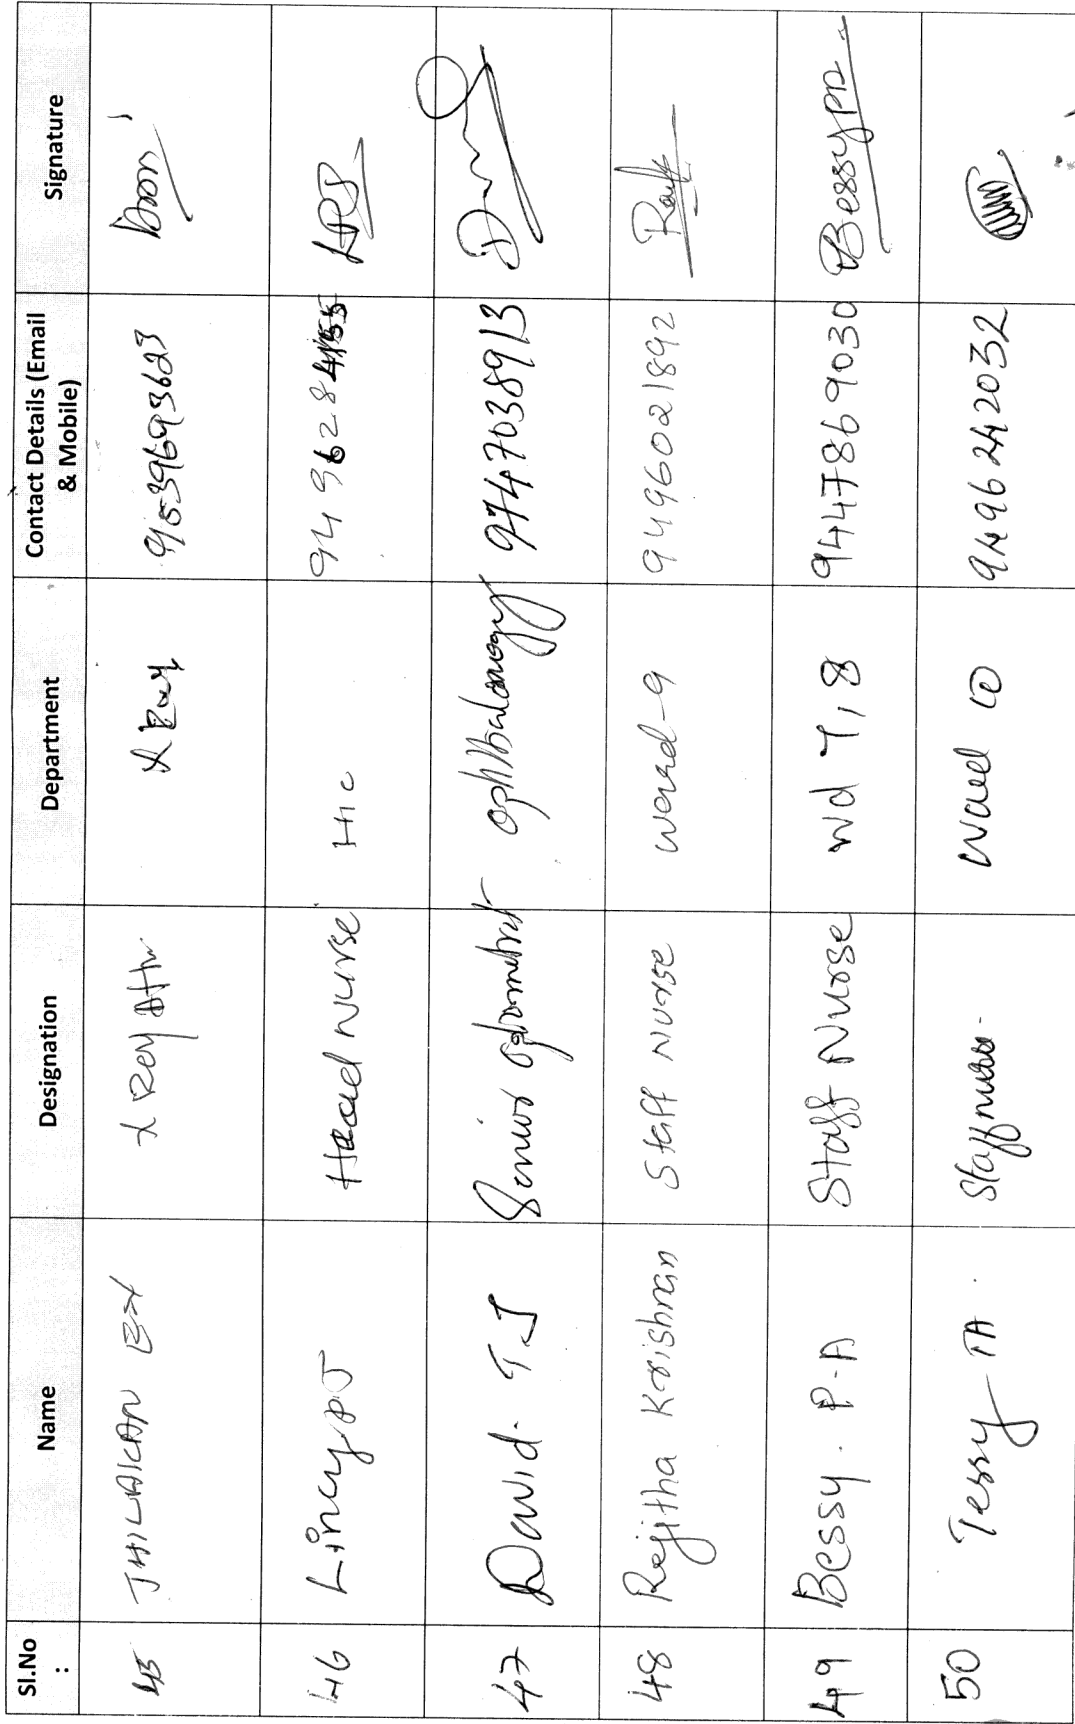 Sl.No : Name Designation Department Contact Details (Email & Mobile) Signature
45 THILAKAN X Ray Attr X Ray 9539693623
46 Lincy PJ Head Nurse HIC 9496284155
47 David. T.J Senior optometrist ophthalmology 9747038913
48 Rejitha Krishnan Staff Nurse ward-9 9496021892
49 Bessy. P.A Staff Nurse wd 7,8 9447869030 Bessy PA
50 Tessy TA. Staff nurse. Ward 10 9496242032